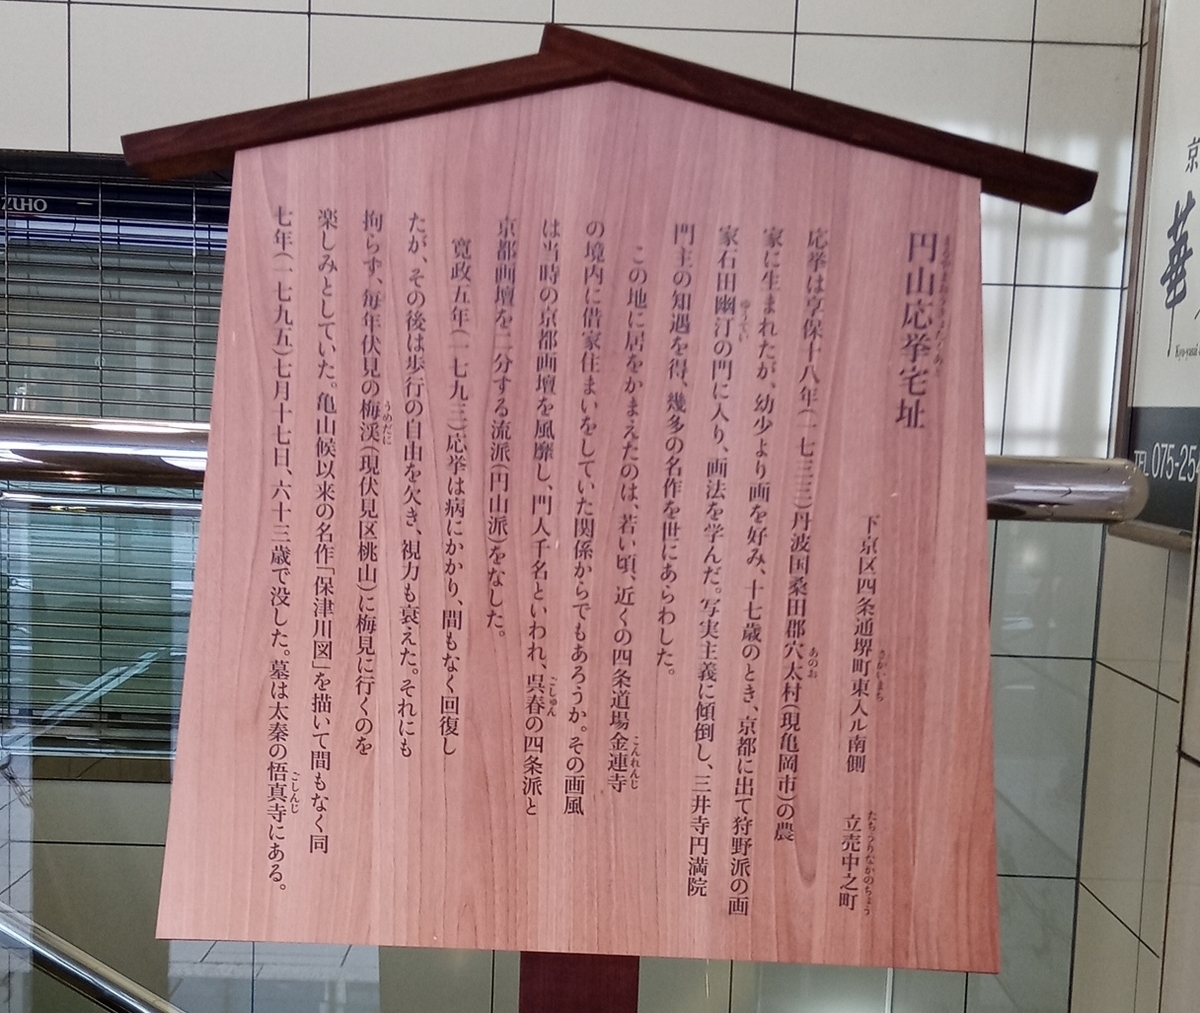 円山応挙宅址
まるやまおうきょたくあと
下京区四条通堺町東入ル南側　立売中之町
さかいまち
たちうりなかのちょう
応挙は享保十八年(一七三三)丹波国桑田郡穴太村(現亀岡市)の農
あのお
家に生まれたが、幼少より画を好み、十七歳のとき、京都に出て狩野派の画
家石田幽汀の門に入り、画法を学んだ。写実主義に傾倒し、三井寺円満院
ゆうてい
門主の知遇を得、幾多の名作を世にあらわした。
この地に居をかまえたのは、若い頃、近くの四条道場金連寺
こんれんじ
の境内に借家住まいをしていた関係からでもあろうか。その画風
は当時の京都画壇を風靡し、門人千名といわれ、呉春の四条派と
ごしゅん
京都画壇を二分する流派(円山派)をなした。
寛政五年(一七九三)応挙は病にかかり、間もなく回復し
たが、その後は歩行の自由を欠き、視力も衰えた。それにも
拘らず、毎年伏見の梅渓(現伏見区桃山)に梅見に行くのを
うめだに
楽しみとしていた。亀山候以来の名作「保津川図」を描いて間もなく同
七年(一七九五)七月十七日、六十三歳で没した。墓は太秦の悟真寺にある。
ごしんじ
ZUHO
京
華
TEL 075-25